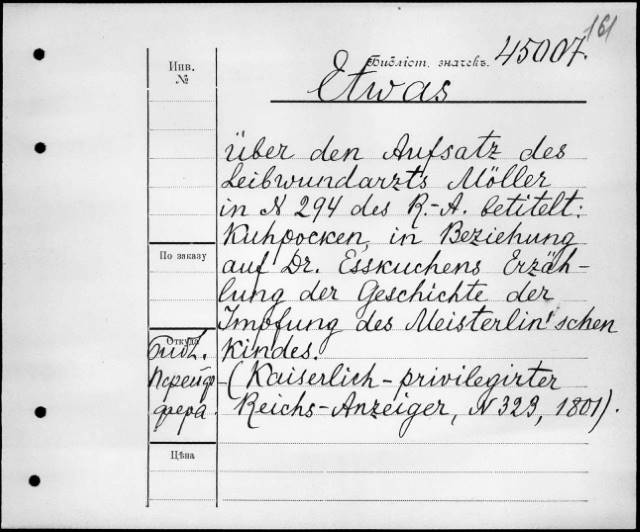 161
Библіот. значекъ. 45007.
Инв.
№
Etwas
über den Aufsatz des
Leibwundarzts Möller
in N 294 des R.-A. betitelt:
Kuhpocken, in Beziehung
По заказу
auf Dr. Esskuchens Erzäh-
lung der Geschichte der
Impfung des Meisterlin'schen
Откуда
Библ. Kindes.
Перейф- (Kaiserlich-privilegirter
фера. Reichs-Anzeiger, N 323, 1801).
Цѣна